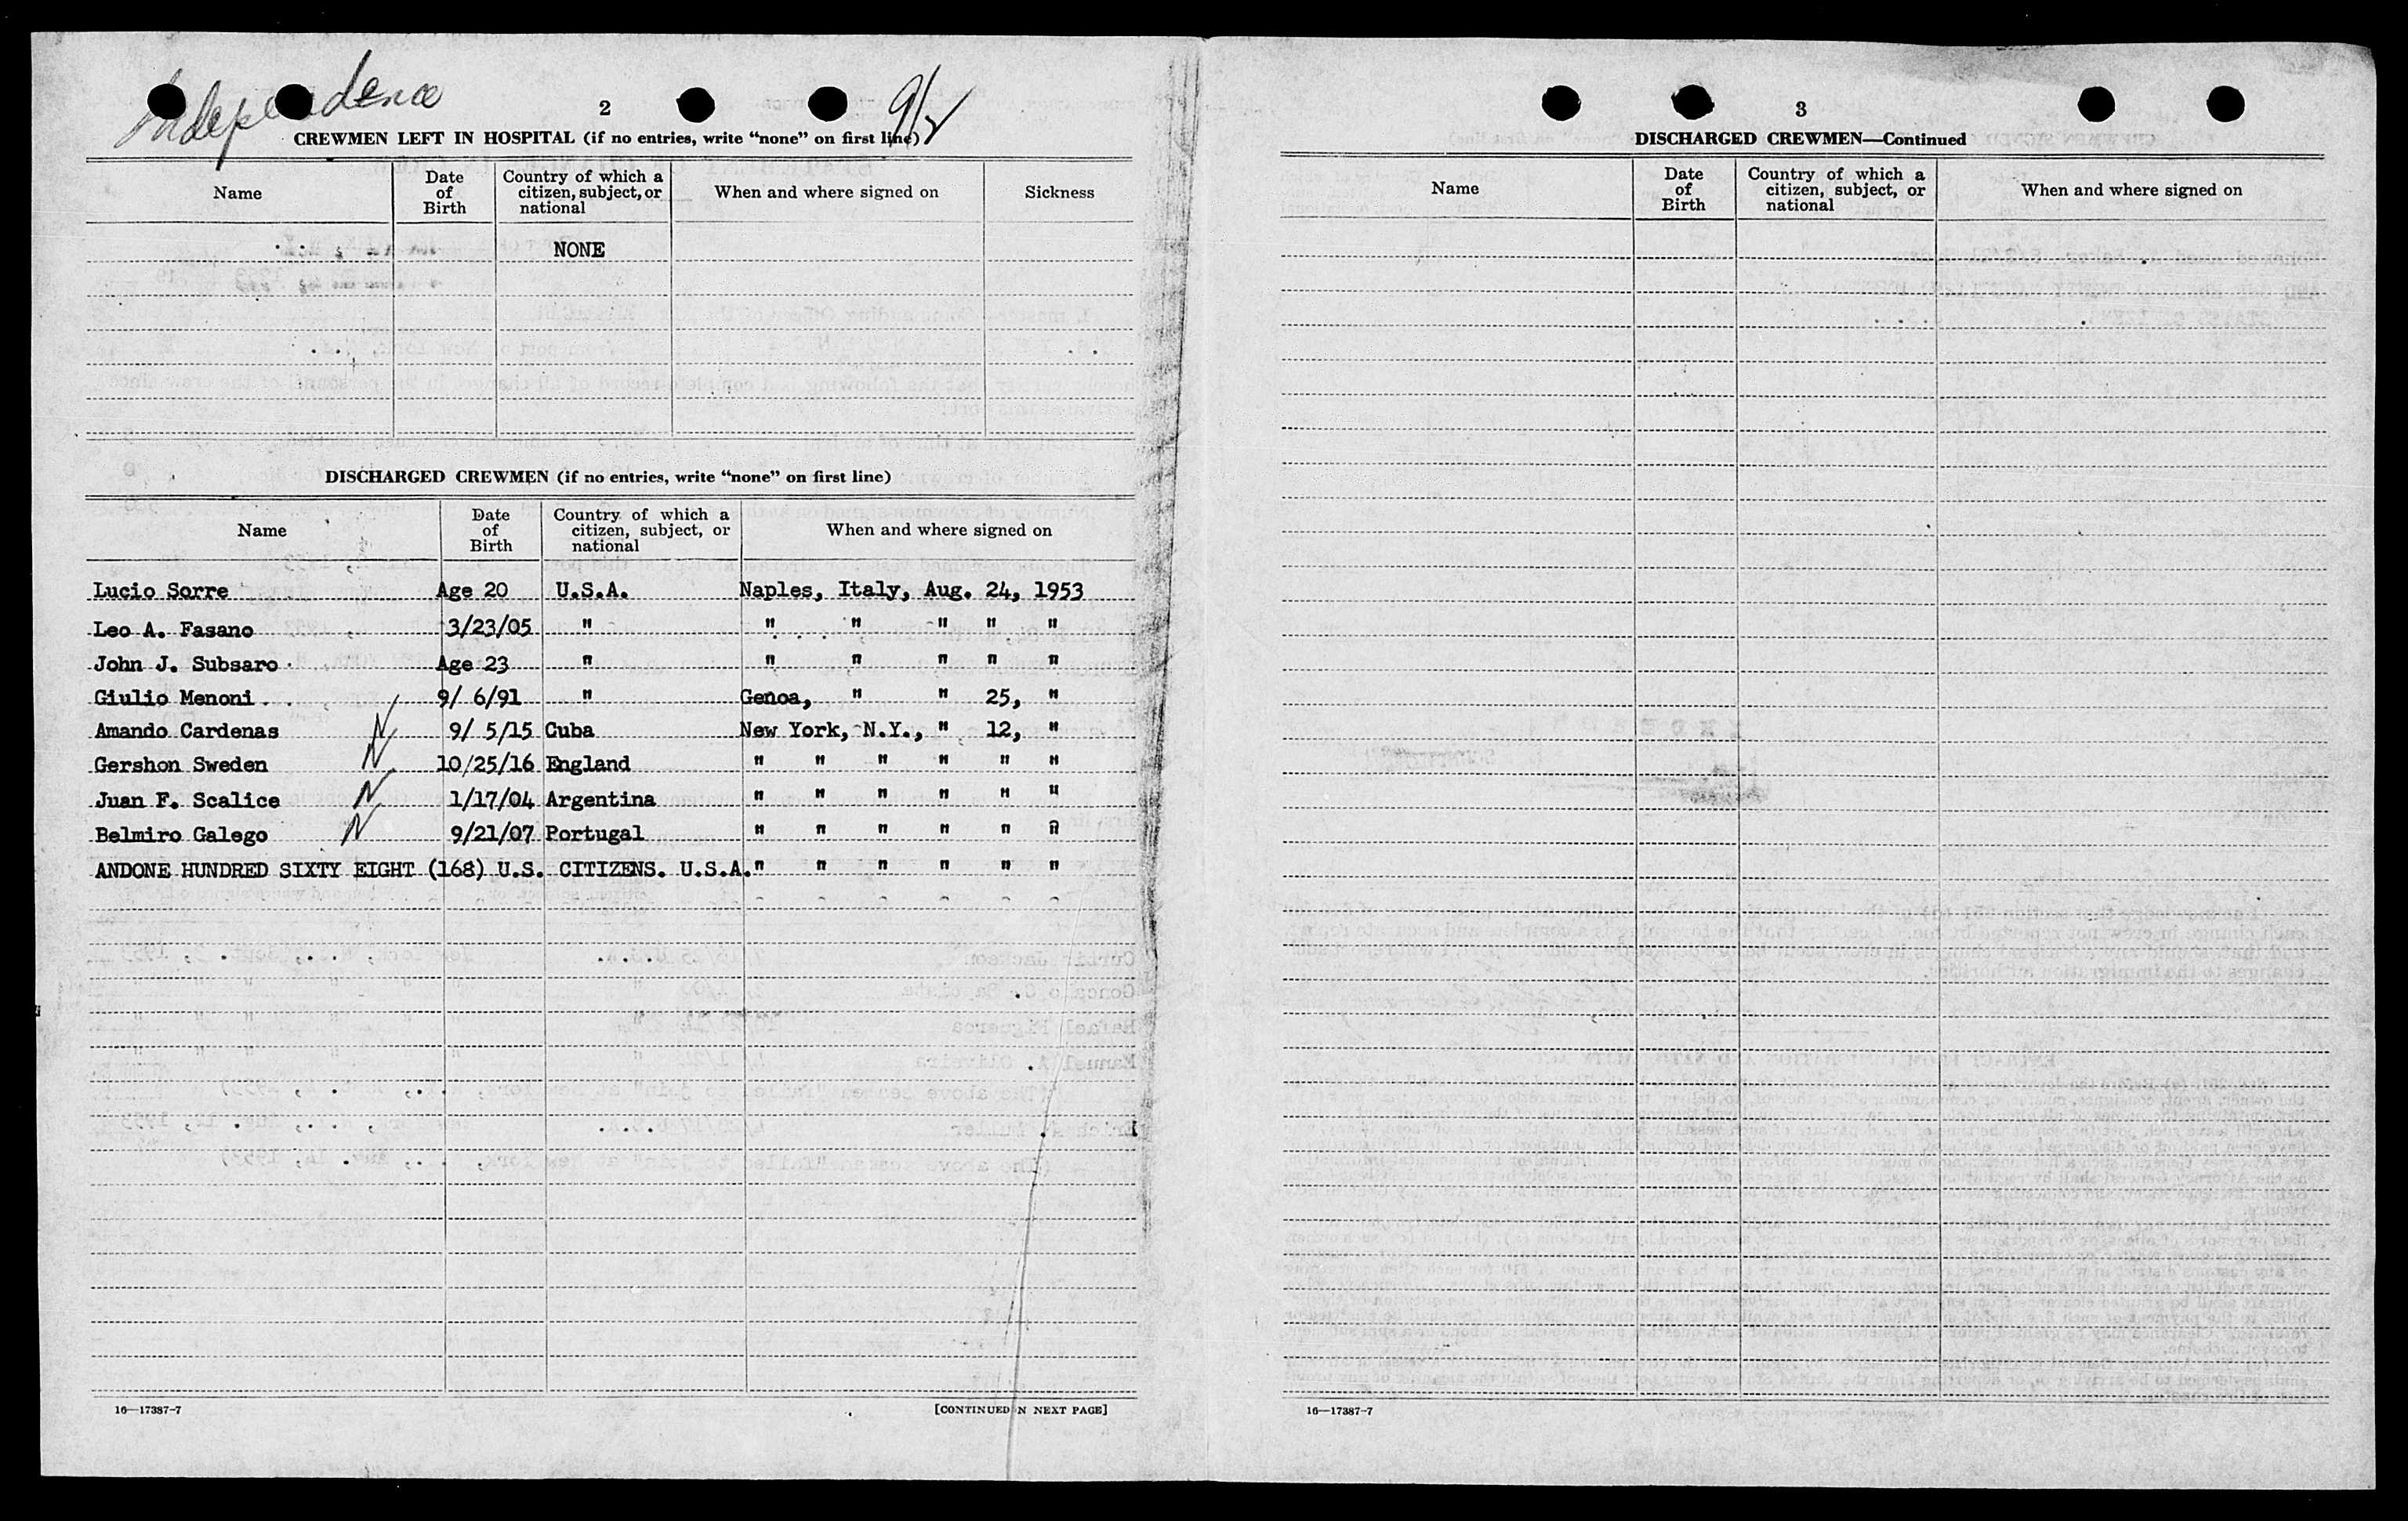 Independence
9/2
2
CREWMEN LEFT IN HOSPITAL (if no entries, write "none" on first line)
Name Date of Birth Country of which a citizen, subject, or national When and where signed on Sickness
NONE
DISCHARGED CREWMEN (if no entries, write "none" on first line)
Name Date of Birth Country of which a citizen, subject, or national When and where signed on
Lucio Sorre Age 20 U.S.A. Naples, Italy, Aug. 24, 1953
Leo A. Fasano 3/23/05 " " " " " "
John J. Subsaro Age 23 " " " " " "
Giulio Menoni 9/ 6/91 " Genoa, " " 25, "
Amando Cardenas N 9/ 5/15 Cuba New York, N.Y., " 12, "
Gershon Sweden N 10/25/16 England " " " " " "
Juan F. Scalice N 1/17/04 Argentina " " " " " "
Belmiro Galego N 9/21/07 Portugal " " " " " "
ANDONE HUNDRED SIXTY EIGHT (168) U.S. CITIZENS. U.S.A. " " " " " "
16—17387-7 [CONTINUED N NEXT PAGE]
3
DISCHARGED CREWMEN—Continued
Name Date of Birth Country of which a citizen, subject, or national When and where signed on
16—17387-7